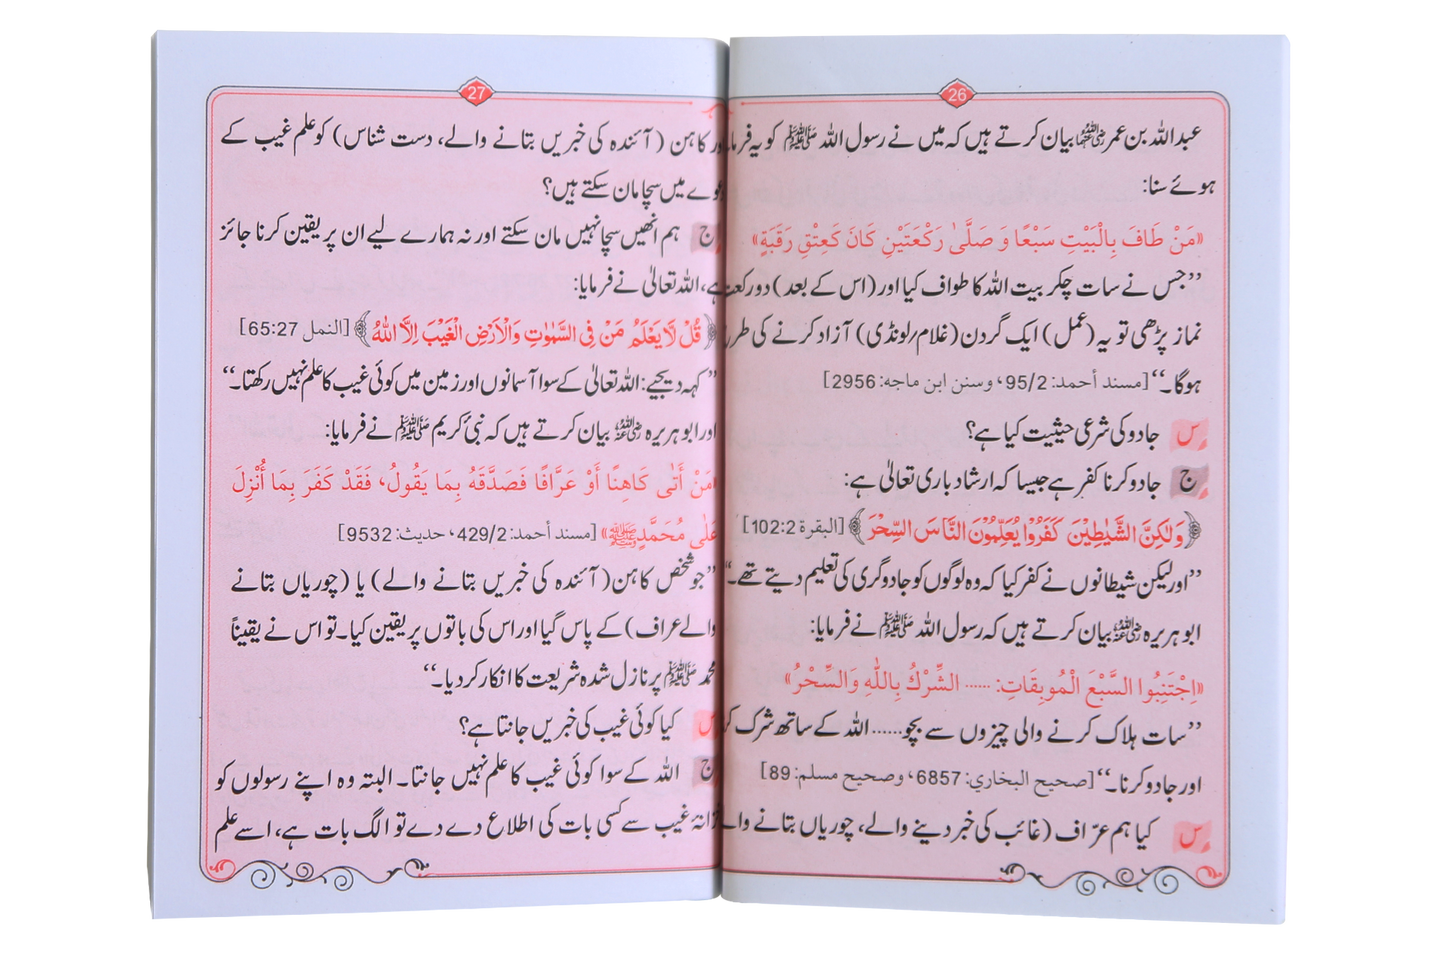 26
عبداللہ بن عمر رضی اللہ عنہما بیان کرتے ہیں کہ میں نے رسول اللہ ﷺ کو یہ فرماتے
ہوئے سنا:
«مَنْ طَافَ بِالْبَيْتِ سَبْعًا وَ صَلَّىٰ رَكْعَتَيْنِ كَانَ كَعِتْقِ رَقَبَةٍ»
’’جس نے سات چکر بیت اللہ کا طواف کیا اور (اس کے بعد) دو رکعت
نماز پڑھی تو یہ (عمل) ایک گردن (غلام/لونڈی) آزاد کرنے کی طرح
ہوگا۔‘‘ [مسند أحمد: 95/2، وسنن ابن ماجه: 2956]
س جادو کی شرعی حیثیت کیا ہے؟
ج جادو کرنا کفر ہے جیسا کہ ارشاد باری تعالیٰ ہے:
﴿وَلٰكِنَّ الشَّيٰطِيْنَ كَفَرُوْا يُعَلِّمُوْنَ النَّاسَ السِّحْرَ﴾ [البقرة 102:2]
’’اور لیکن شیطانوں نے کفر کیا کہ وہ لوگوں کو جادوگری کی تعلیم دیتے تھے۔‘‘
ابو ہریرہ رضی اللہ عنہ بیان کرتے ہیں کہ رسول اللہ ﷺ نے فرمایا:
«اِجْتَنِبُوا السَّبْعَ الْمُوبِقَاتِ: ...... الشِّرْكُ بِاللّٰهِ وَالسِّحْرُ»
’’سات ہلاک کرنے والی چیزوں سے بچو...... اللہ کے ساتھ شرک
اور جادو کرنا۔‘‘ [صحيح البخاري: 6857، وصحيح مسلم: 89]
س کیا ہم عرّاف (غائب کی خبر دینے والے، چوریاں بتانے والے
27
کاہن (آئندہ کی خبریں بتانے والے، دست شناس) کو علم غیب کے
دعوے میں سچا مان سکتے ہیں؟
ج ہم انھیں سچا نہیں مان سکتے اور نہ ہمارے لیے ان پر یقین کرنا جائز
ہے، اللہ تعالیٰ نے فرمایا:
﴿قُلْ لَّا يَعْلَمُ مَنْ فِي السَّمٰوٰتِ وَالْاَرْضِ الْغَيْبَ اِلَّا اللّٰهُ﴾ [النمل 65:27]
’’کہہ دیجیے: اللہ تعالیٰ کے سوا آسمانوں اور زمین میں کوئی غیب کا علم نہیں رکھتا۔‘‘
اور ابو ہریرہ رضی اللہ عنہ بیان کرتے ہیں کہ نبیٔ کریم ﷺ نے فرمایا:
«مَنْ أَتَى كَاهِنًا أَوْ عَرَّافًا فَصَدَّقَهُ بِمَا يَقُولُ، فَقَدْ كَفَرَ بِمَا أُنْزِلَ
عَلٰى مُحَمَّدٍ ﷺ» [مسند أحمد: 429/2، حديث: 9532]
’’جو شخص کاہن (آئندہ کی خبریں بتانے والے) یا (چوریاں بتانے
والے عراف) کے پاس گیا اور اس کی باتوں پر یقین کیا۔ تو اس نے یقیناً
محمد ﷺ پر نازل شدہ شریعت کا انکار کر دیا۔‘‘
س کیا کوئی غیب کی خبریں جانتا ہے؟
ج اللہ کے سوا کوئی غیب کا علم نہیں جانتا۔ البتہ وہ اپنے رسولوں کو
خزانۂ غیب سے کسی بات کی اطلاع دے دے تو الگ بات ہے، اسے علم